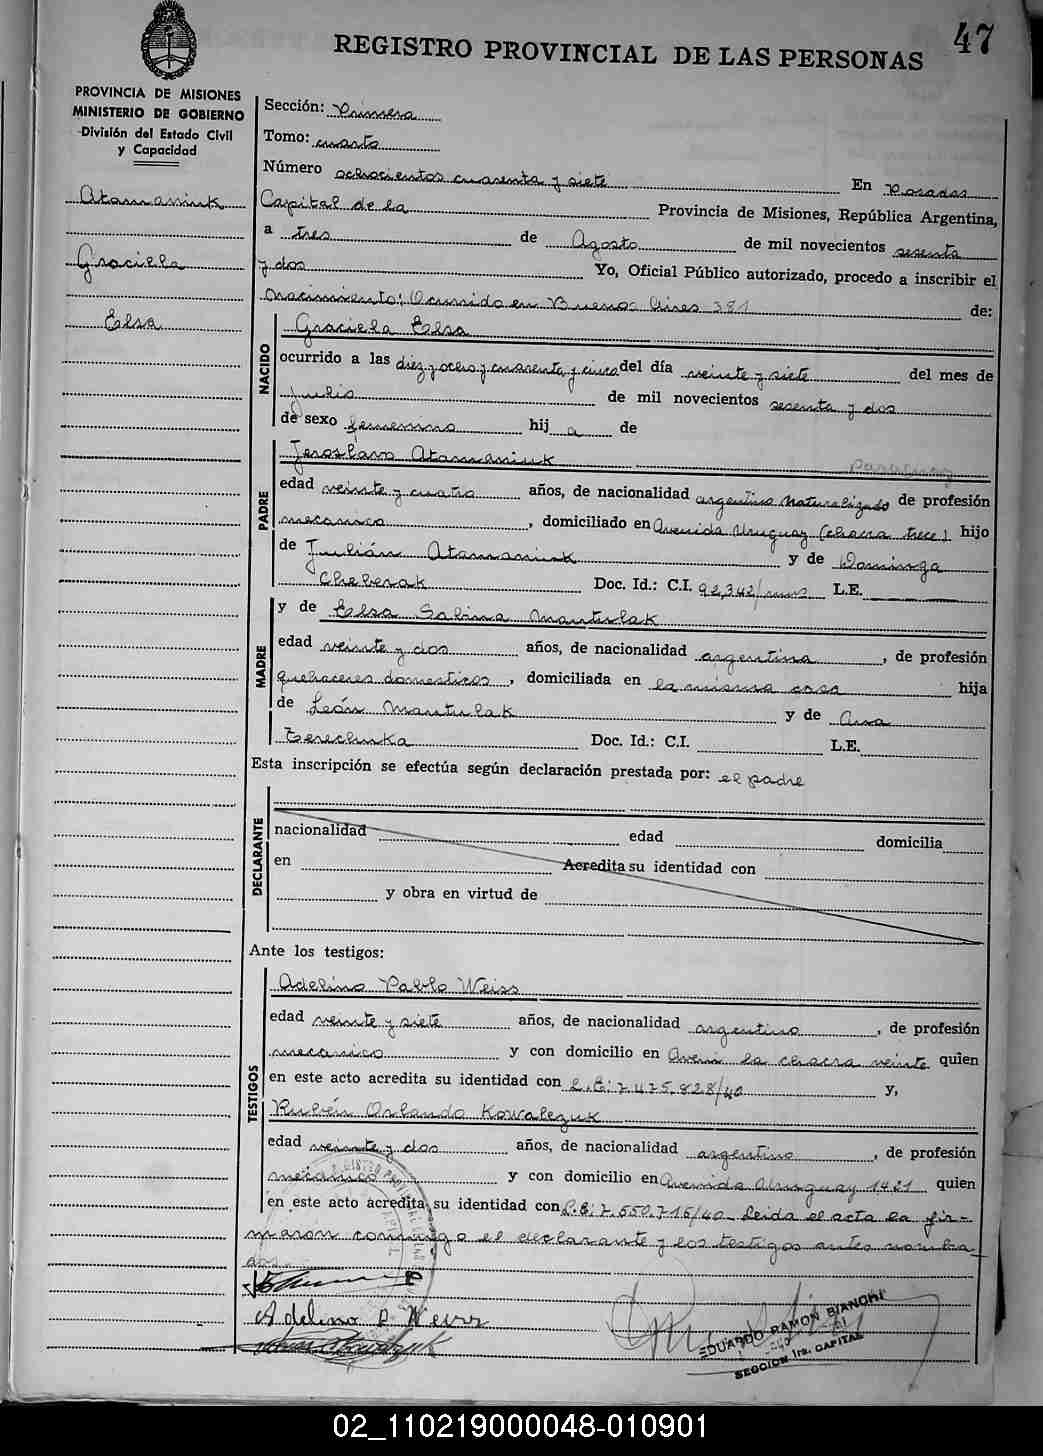 47
REGISTRO PROVINCIAL DE LAS PERSONAS
PROVINCIA DE MISIONES
MINISTERIO DE GOBIERNO
División del Estado Civil
y Capacidad
Atamaniuk
Graciela
Elsa
Sección: Primera
Tomo: cuarto
Número ochocientos cuarenta y siete En Posadas
Capital de la Provincia de Misiones, República Argentina,
a tres de Agosto de mil novecientos sesenta
y dos Yo, Oficial Público autorizado, procedo a inscribir el
nacimiento: Ocurrido en Buenos Aires 381 de:
NACIDO
Graciela Elsa
ocurrido a las diez y ocho y cuarenta y cinco del día veinte y siete del mes de
Julio de mil novecientos sesenta y dos
de sexo femenino hij a de
PADRE
Jeroslavo Atamaniuk
edad veinte y cuatro años, de nacionalidad argentino naturalizado de profesión
mecanico, domiciliado en Avenida Uruguay (chacra trece) hijo
de Julián Atamaniuk y de Dominga
Cheberak Doc. Id.: C.I. 92,342/mns L.E.
MADRE
y de Elsa Sabina Mantulak
edad veinte y dos años, de nacionalidad argentina, de profesión
quehaceres domesticos, domiciliada en la misma casa hija
de León Mantulak y de Ana
Terechuka Doc. Id.: C.I. L.E.
Esta inscripción se efectúa según declaración prestada por: el padre
DECLARANTE
nacionalidad edad domicilia
en Acredita su identidad con
y obra en virtud de
Ante los testigos:
TESTIGOS
Adelino Pablo Weiss
edad veinte y siete años, de nacionalidad argentino, de profesión
mecanico y con domicilio en la chacra veinte quien
en este acto acredita su identidad con L.E: 7.475.828/40 y,
Rubén Orlando Kowalczuk
edad veinte y dos años, de nacionalidad argentino, de profesión
mecánico y con domicilio en Avenida Uruguay 1421 quien
en este acto acredita su identidad con L.E: 7.550.716/40 Leida el acta la fir-
maron conmigo el declarante y los testigos antes nombra-
dos.
Adelino P Weiss
EDUARDO RAMON BIANCHI
SECCION 1ra. CAPITAL
02_110219000048-010901